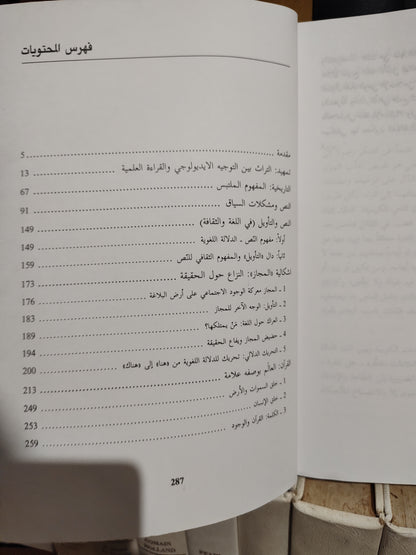 فهرس المحتويات
مقدمة ........ 5
تمهيد: التراث بين التوجيه الايديولوجي والقراءة العلمية ........ 13
التاريخية: المفهوم الملتبس ........ 67
النص ومشكلات السياق ........ 91
النص والتأويل (في اللغة والثقافة) ........ 149
أولاً: مفهوم النّص ـ الدلالة اللغوية ........ 149
ثانياً: دال «التأويل» والمفهوم الثقافي للنّص ........ 159
اشكالية «المجاز»: النزاع حول الحقيقة ........ 173
1 ـ المجاز معركة الوجود الاجتماعي على أرض البلاغة ........ 176
2 ـ التأويل: الوجه الآخر للمجاز ........ 183
3 ـ العراك حول اللغة: مَنْ يمتلكها؟ ........ 189
4 ـ حضيض المجاز ويفاع الحقيقة ........ 194
5 ـ التحريك الدلالي: تحريك للدلالة اللغوية من «هنا» إلى «هناك» ........ 200
القرآن: العالَم بوصفه علامة ........ 213
1 ـ خلق السموات والأرض ........ 249
2 ـ خلق الإنسان ........ 253
3 ـ الكلمة: القرآن والوجود ........ 259
287
ROMAIN
ROLLAND